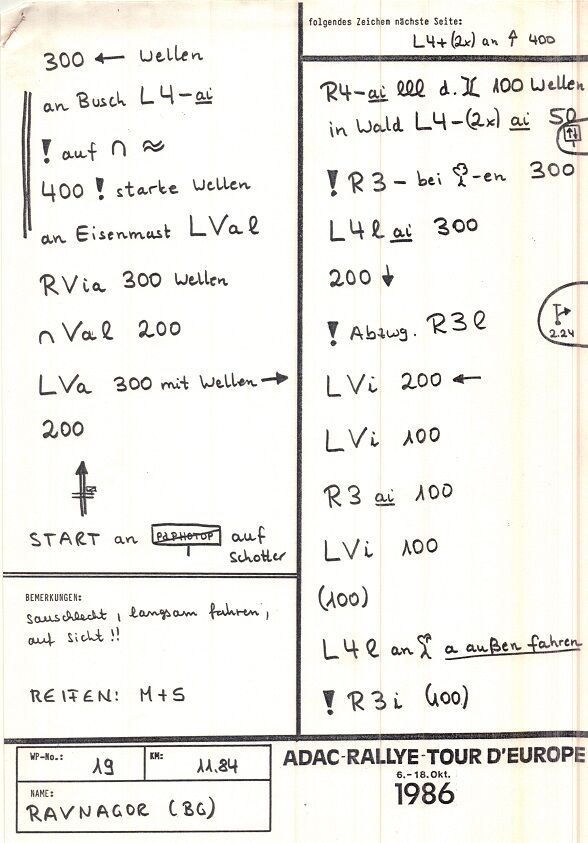 300 ← Wellen
an Busch L4-ai
! auf ∩ ≈
400 ! starke Wellen
an Eisenmast LVal
RVia 300 Wellen
∩ Val 200
LVa 300 mit Wellen →
200
START an auf
Schotter
BEMERKUNGEN:
sauschlecht, langsam fahren,
auf Sicht!!
REIFEN: M+S
folgendes Zeichem nächste Seite:
L4+(2x) an ↑ 400
R4-ai lll d. 100 Wellen
in Wald L4-(2x) ai 50
! R3- bei -en 300
L4l ai 300
200 ↓
! Abzwg. R3l
2.24
LVi 200 ←
LVi 100
R3 ai 100
LVi 100
(100)
L4l an a außen fahren
! R3i (100)
WP-No.: 19
KM: 11.84
NAME:
RAVNAGOR (BG)
ADAC-RALLYE-TOUR D'EUROPE
6.-18.Okt.
1986